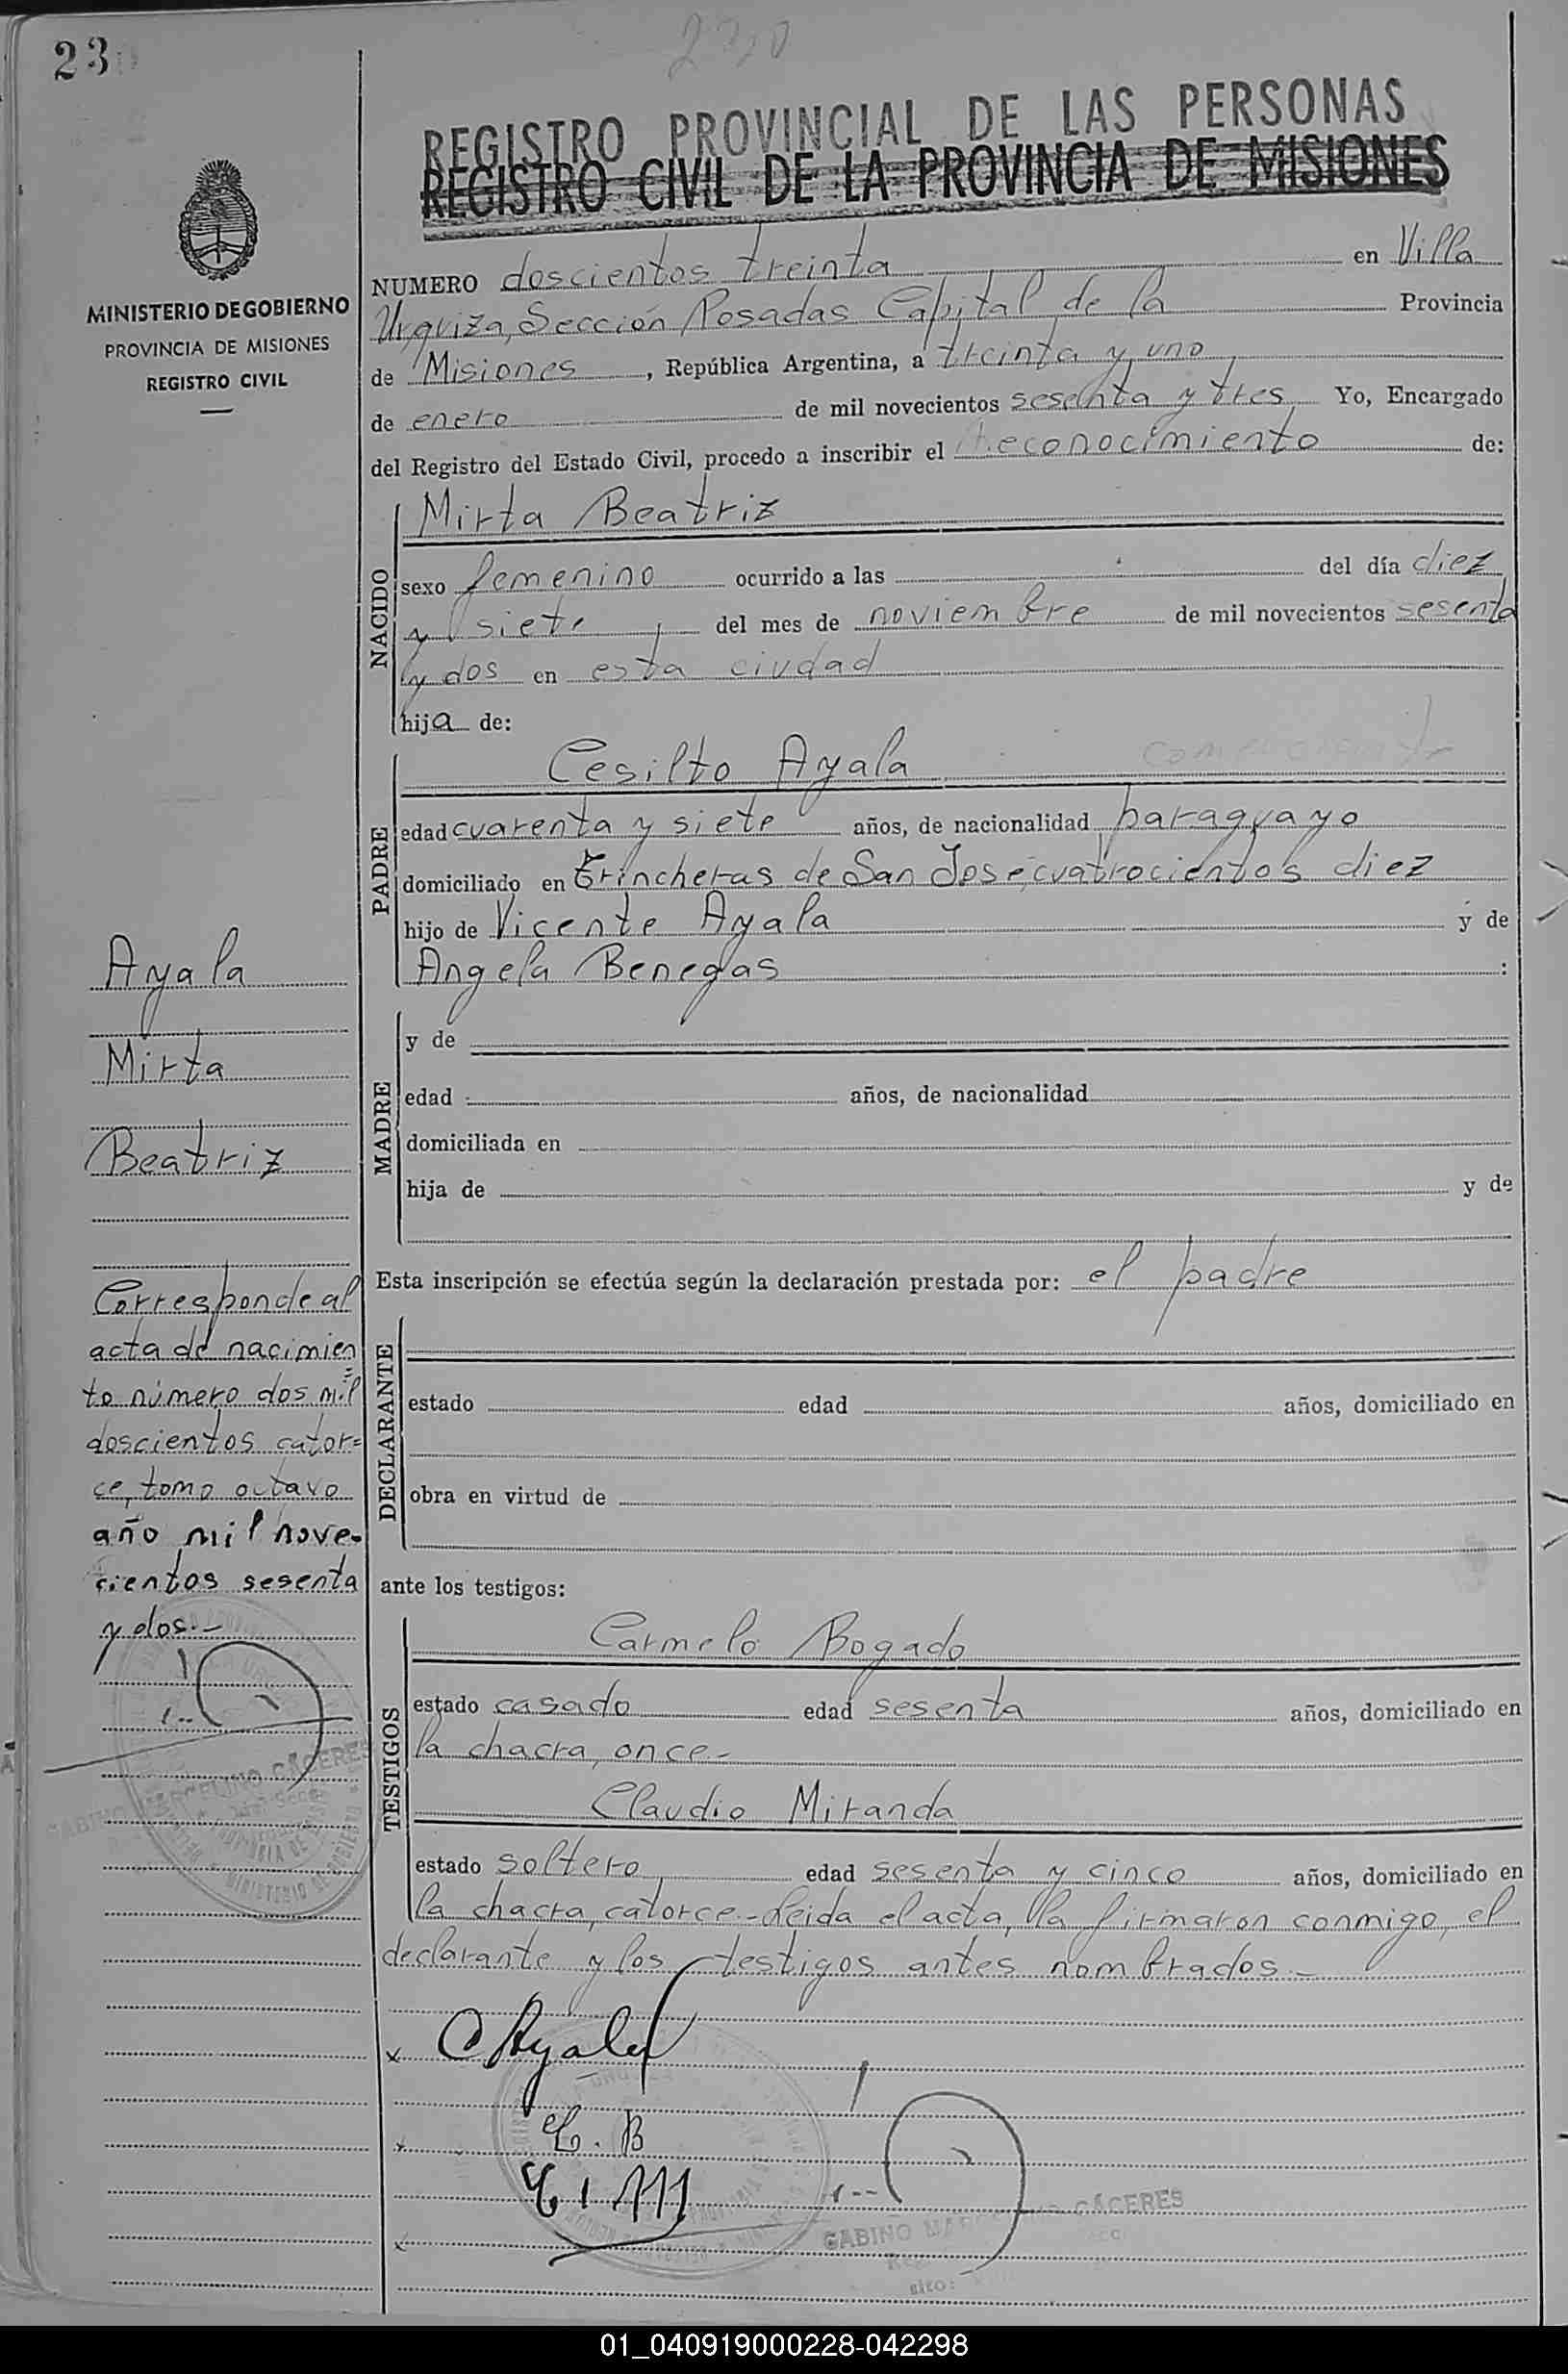 23
REGISTRO PROVINCIAL DE LAS PERSONAS
REGISTRO CIVIL DE LA PROVINCIA DE MISIONES
MINISTERIO DE GOBIERNO
PROVINCIA DE MISIONES
REGISTRO CIVIL
NUMERO doscientos treinta en Villa
Urquiza, Sección Posadas Capital de la Provincia
de Misiones, República Argentina, a treinta y uno
de enero de mil novecientos sesenta y tres Yo, Encargado
del Registro del Estado Civil, procedo a inscribir el Reconocimiento de:
NACIDO
Mirta Beatriz
sexo femenino ocurrido a las del día diez
y siete del mes de noviembre de mil novecientos sesenta
y dos en esta ciudad
hija de:
PADRE
Cesilto Ayala
edad cuarenta y siete años, de nacionalidad paraguayo
domiciliado en Trincheras de San José, cuatrocientos diez
hijo de Vicente Ayala y de
Angela Benegas :
MADRE
y de
edad años, de nacionalidad
domiciliada en
hija de y de
Esta inscripción se efectúa según la declaración prestada por: el padre
DECLARANTE
estado edad años, domiciliado en
obra en virtud de
ante los testigos:
TESTIGOS
Carmelo Bogado
estado casado edad sesenta años, domiciliado en
la chacra, once.-
Claudio Miranda
estado soltero edad sesenta y cinco años, domiciliado en
la chacra, catorce.-Leida el acta, la firmaron conmigo, el
declarante y los testigos antes nombrados.-
x CAyala
C. B
C. M
GABINO CÁCERES
Ayala
Mirta
Beatriz
Corresponde al
acta de nacimien
to número dos mil
doscientos cator=
ce, tomo octavo
año mil nove-
cientos sesenta
y dos.-
MARCELINO CÁCERES
01_040919000228-042298